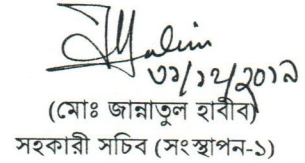 ৩১/১২/২০১৯
(মোঃ জান্নাতুল হাবীব)
সহকারী সচিব (সংস্থাপন-১)